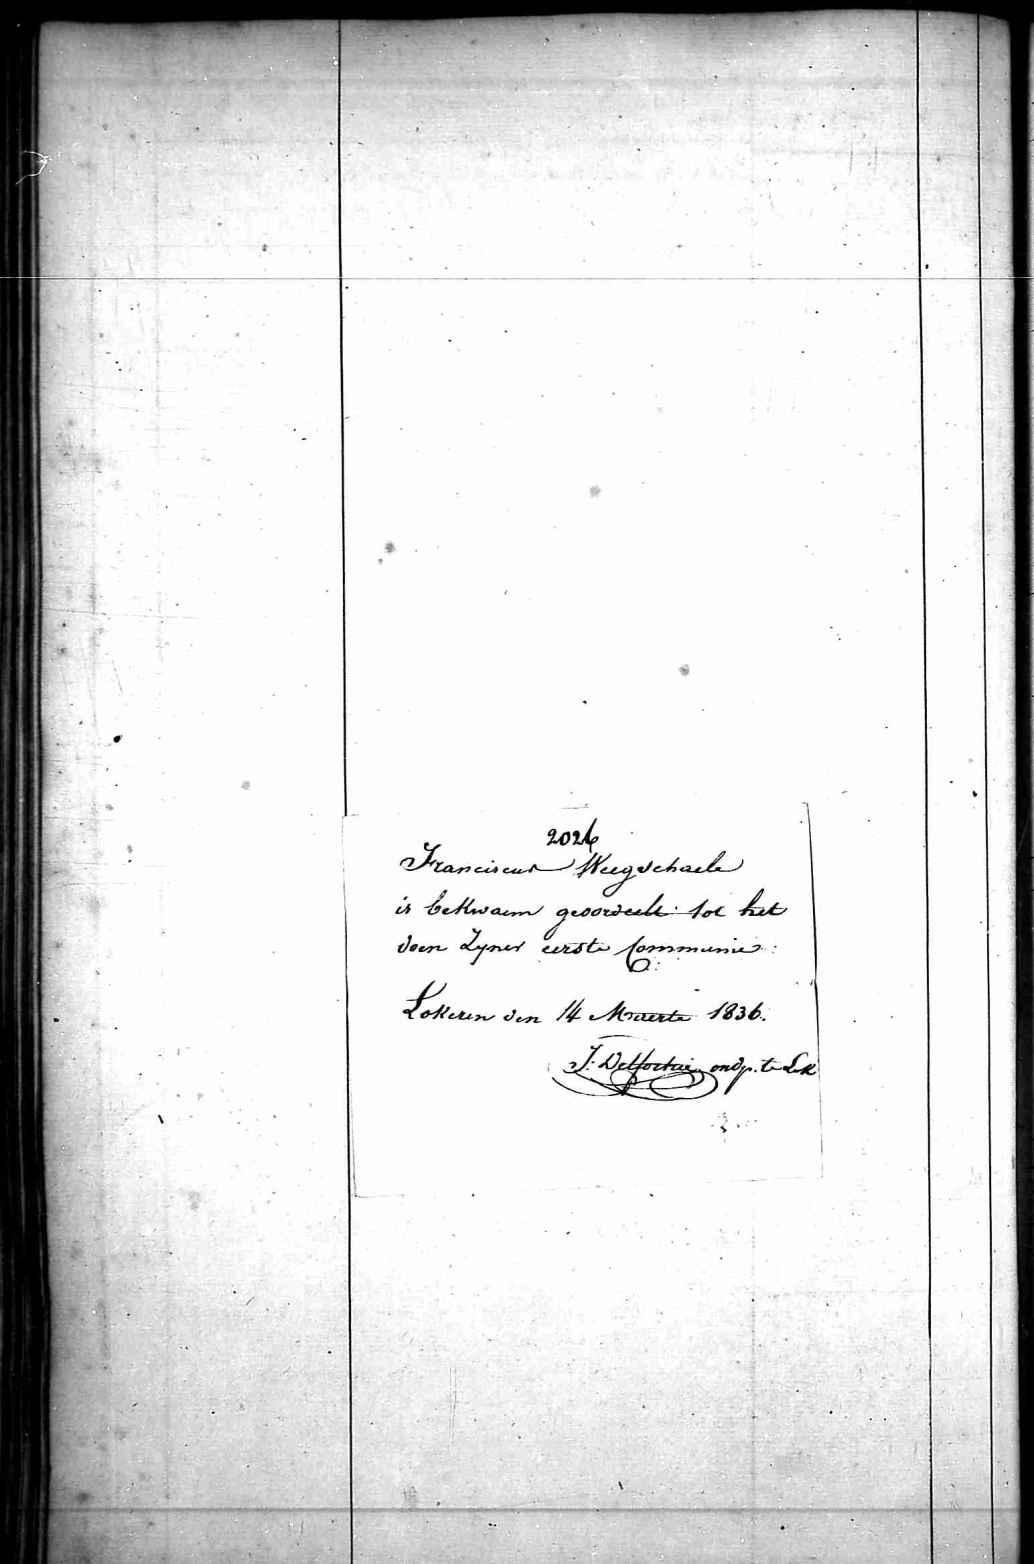 2026
Franciscus Weegschaele
is bekwaem geoordeelt tot het
doen Zyner eerste Communie
Lokeren den 14 Maerte 1836.
J: ondp. te Lok